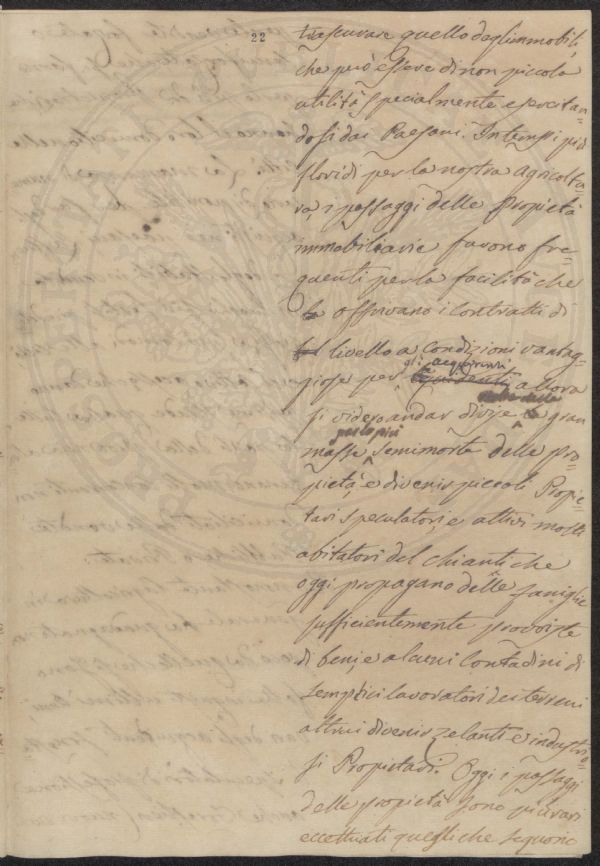 22
trascurare quello degl'immobili,
che può essere di non piccola
utilità specialmente esercitan=
dosi dai Paesani. In tempi più
floridi per la nostra agricoltu=
ra, i passaggi delle Propietà
immobiliarie furono fre=
quenti per la facilità che
offrivano i Contratti di
livello a Condizioni vantag=
giose per gli acquirenti allora
si videro andar divise delle gran
masse per lo più semimorte delle pro=
pietà, e divenir piccoli Propie=
tarj speculatori, e attivi molti
abitatori del Chianti che
oggi propagano delle famiglie
sufficientemente provviste
di beni, e alcuni Contadini di
semplici lavoratori dei terreni
altrui divenir zelanti e industrio=
si Propietarj. Oggi i passaggi
delle propietà sono più rari
eccettuati quegli che seguono